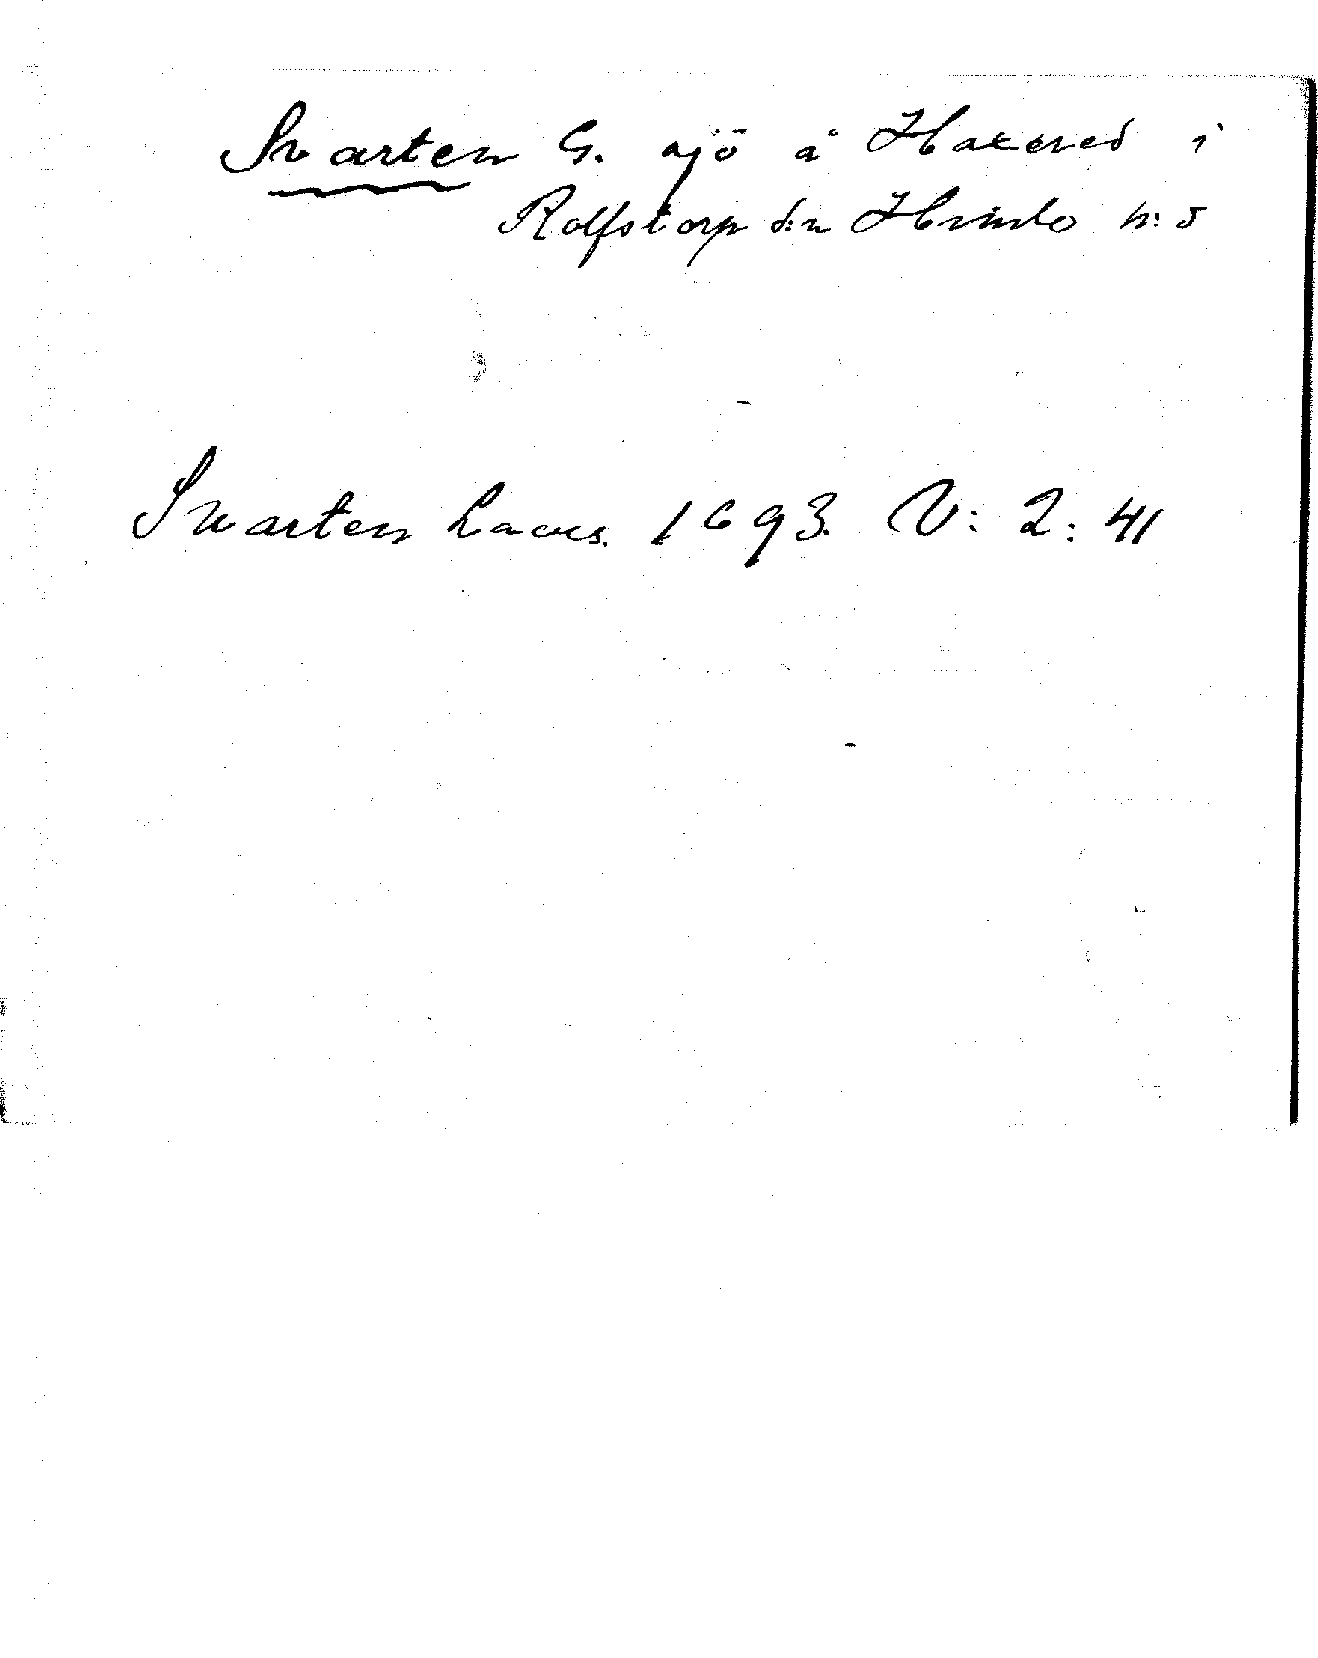 Svarten G. sjö å Haxered i
Rolfstorp s:n Himle h:d
Svarten Lacus. 1693. V: 2: 41